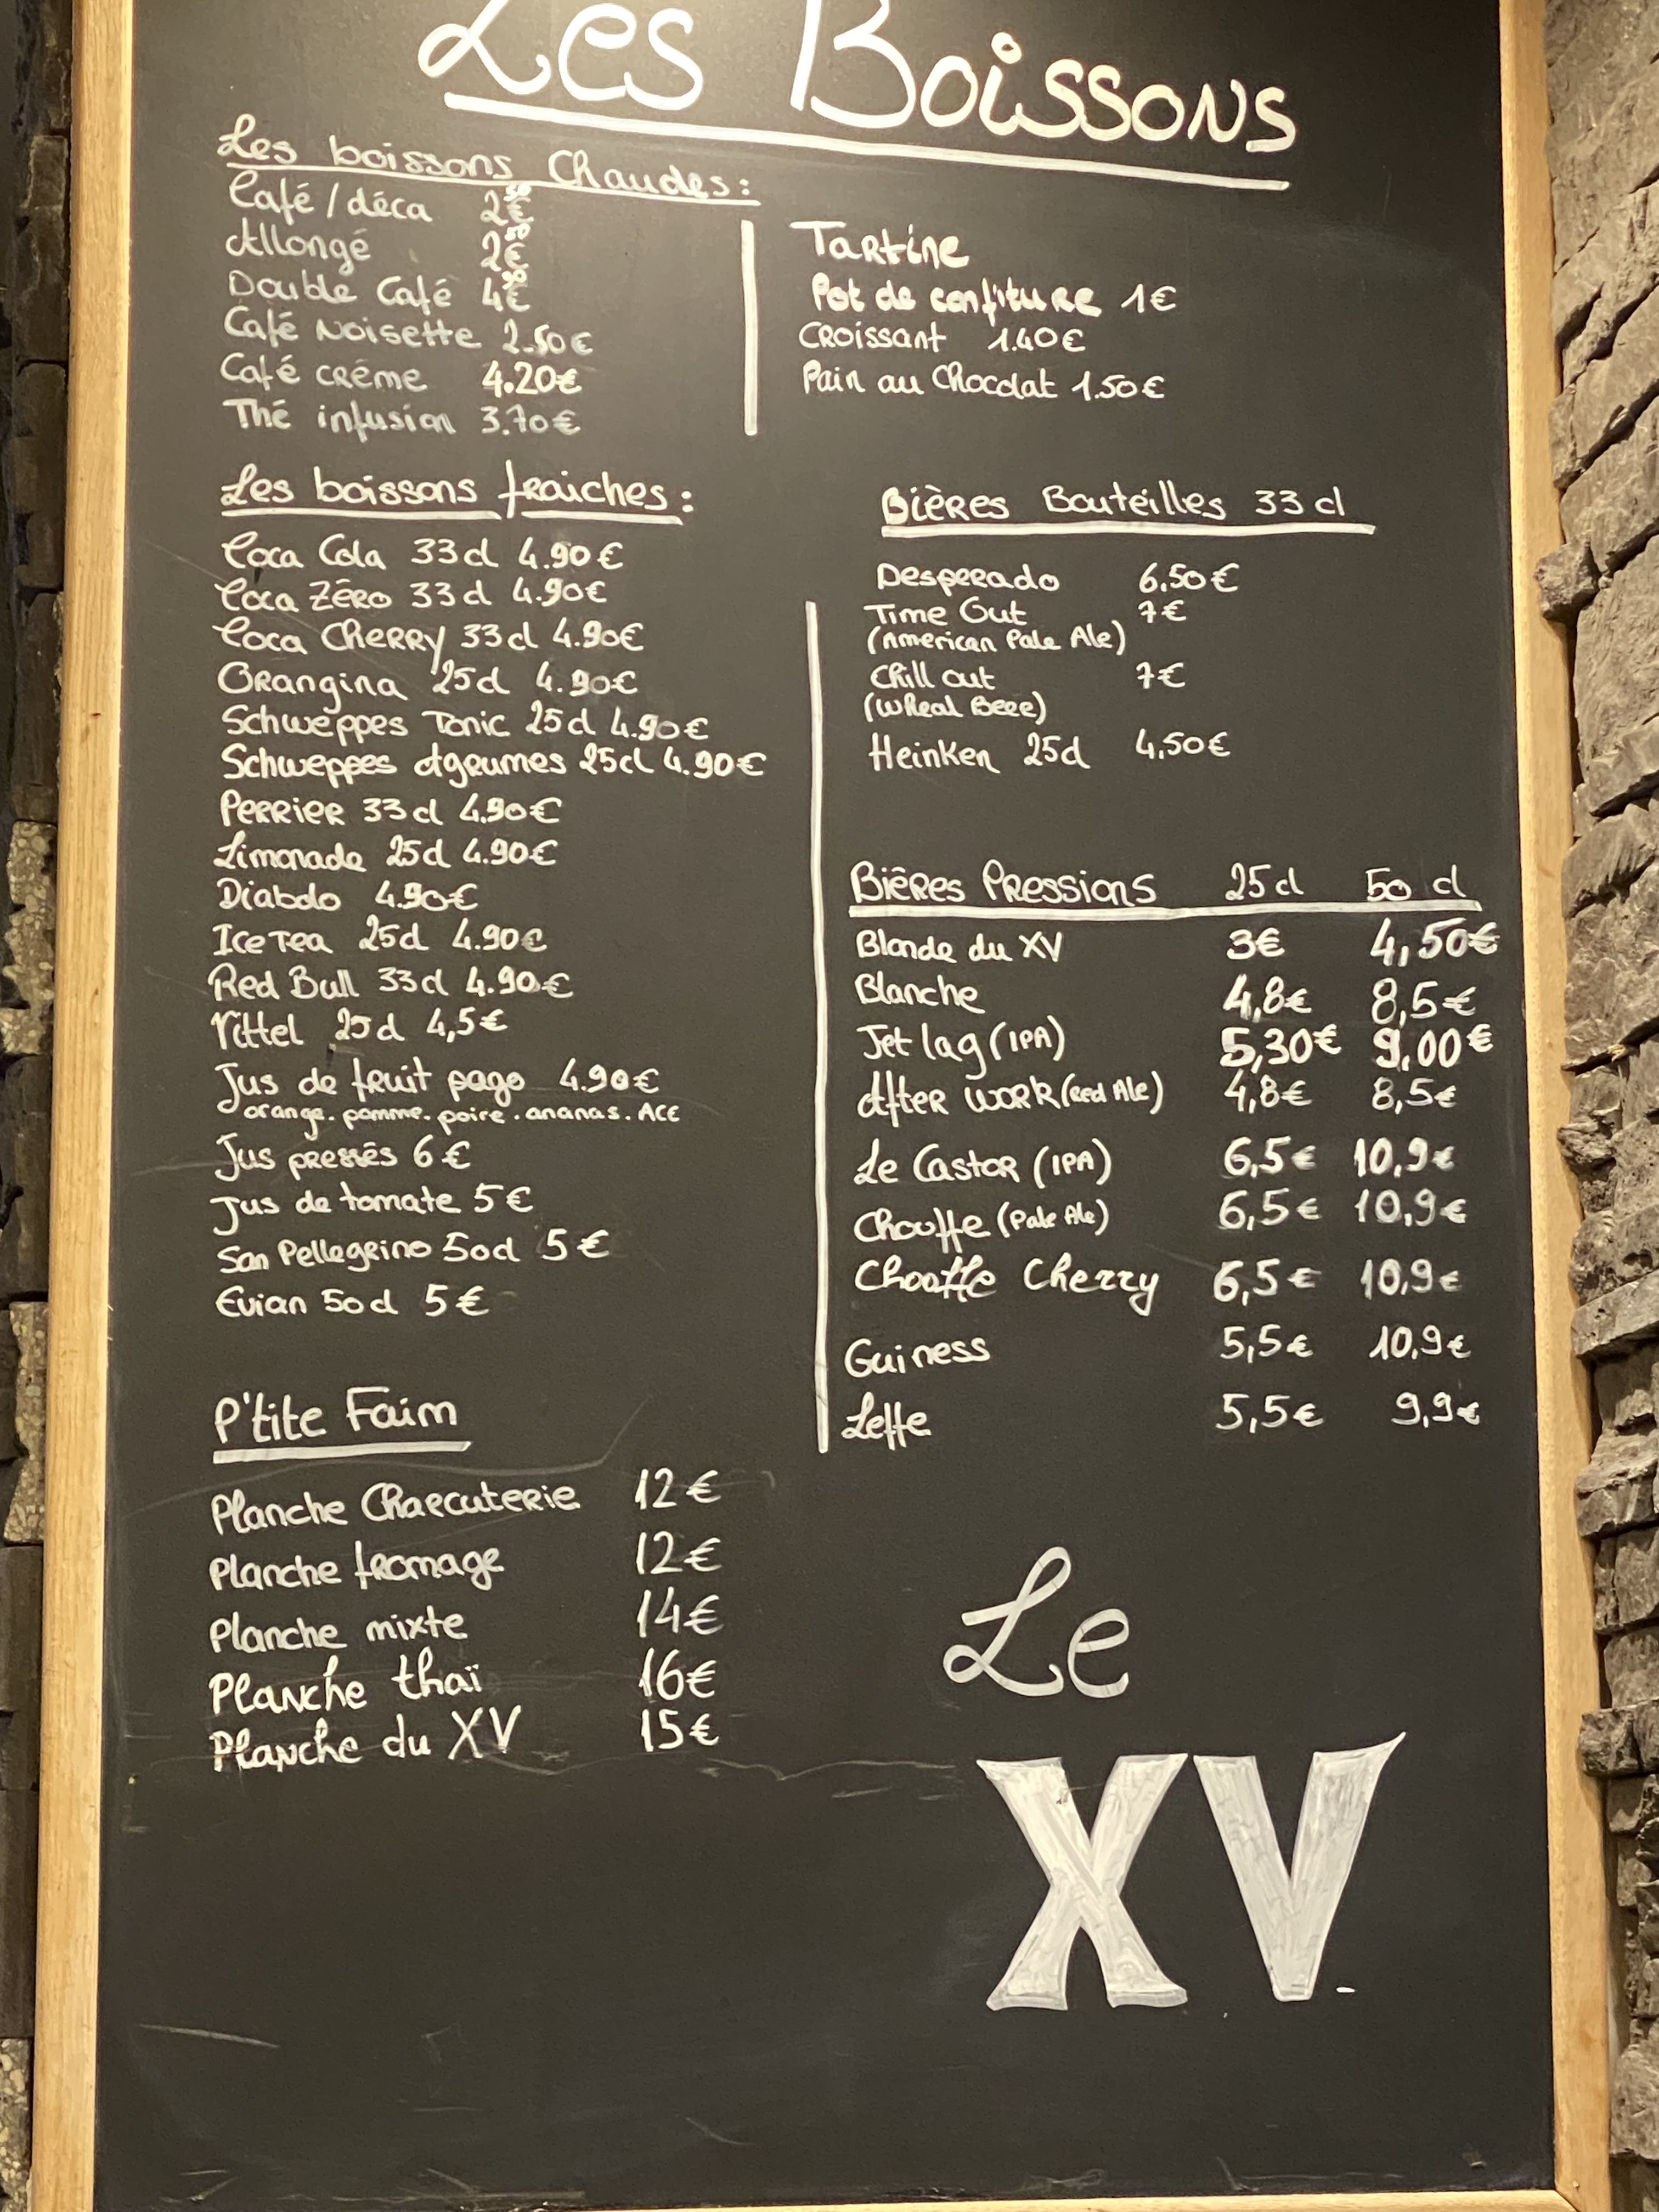 Les Boissons
Les boissons Chaudes:
Café/déca 2€50
Allongé 2€50
Double Café 4€90
Café Noisette 2.50€
Café crème 4.20€
Thé infusion 3.70€
Tartine
Pot de confiture 1€
Croissant 1.40€
Pain au Chocolat 1.50€
Les boissons fraiches:
Coca Cola 33cl 4.90€
Coca Zéro 33cl 4.90€
Coca Cherry 33cl 4.90€
Orangina 25cl 4.90€
Schweppes Tonic 25cl 4.90€
Schweppes Agrumes 25cl 4.90€
Perrier 33cl 4.90€
Limonade 25cl 4.90€
Diabolo 4.90€
Ice Tea 25cl 4.90€
Red Bull 33cl 4.90€
Vittel 25cl 4,5€
Jus de fruit pago 4.90€
orange. pomme. poire. ananas. ACE
Jus pressés 6€
Jus de tomate 5€
San Pellegrino 50cl 5€
Evian 50cl 5€
P'tite Faim
Planche Charcuterie 12€
Planche fromage 12€
Planche mixte 14€
Planche thaï 16€
Planche du XV 15€
Bières Bouteilles 33cl
Desperado 6.50€
Time Out 7€
(American Pale Ale)
Chill out 7€
(Wheat Beer)
Heinken 25cl 4,50€
Bières Pressions 25cl 50 cl
Blonde du XV 3€ 4,50€
Blanche 4,8€ 8,5€
Jet lag (IPA) 5,30€ 9,00€
After work (Red Ale) 4,8€ 8,5€
Le Castor (IPA) 6,5€ 10,9€
Chouffe (Pale Ale) 6,5€ 10,9€
Chouffe Cherry 6,5€ 10,9€
Guiness 5,5€ 10,9€
Leffe 5,5€ 9,9€
Le
XV